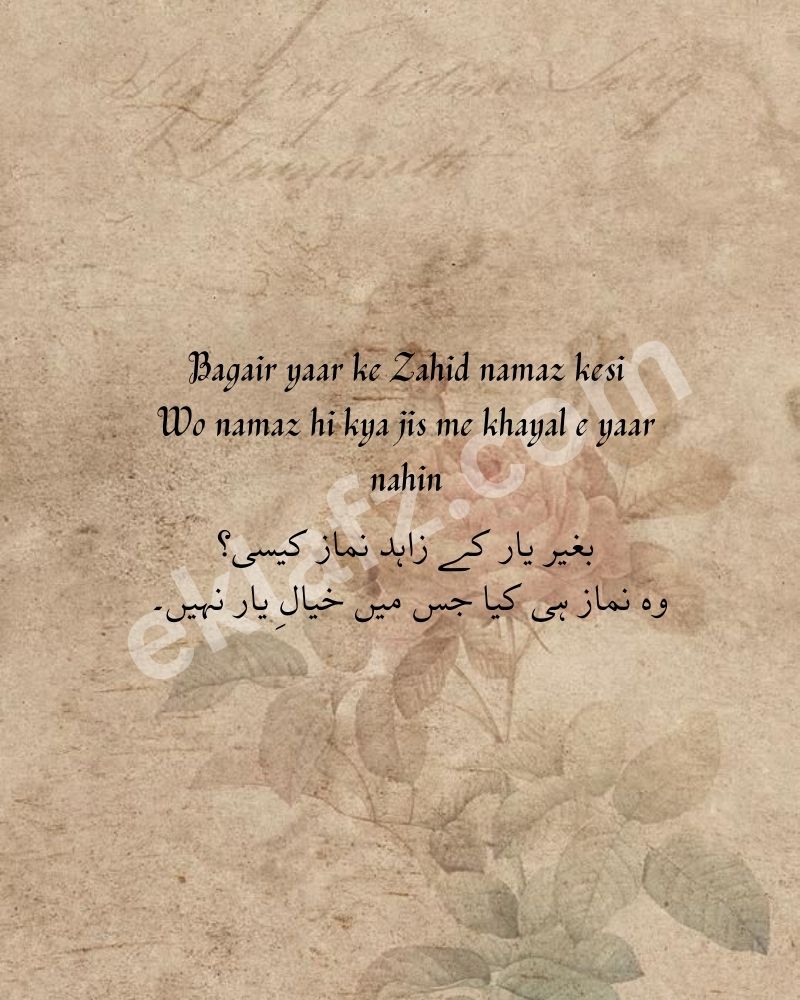 Bagair yaar ke Zahid namaz kesi
Wo namaz hi kya jis me khayal e yaar
nahin
بغیر یار کے زاہد نماز کیسی؟
وہ نماز ہی کیا جس میں خیالِ یار نہیں۔
eklafz.com